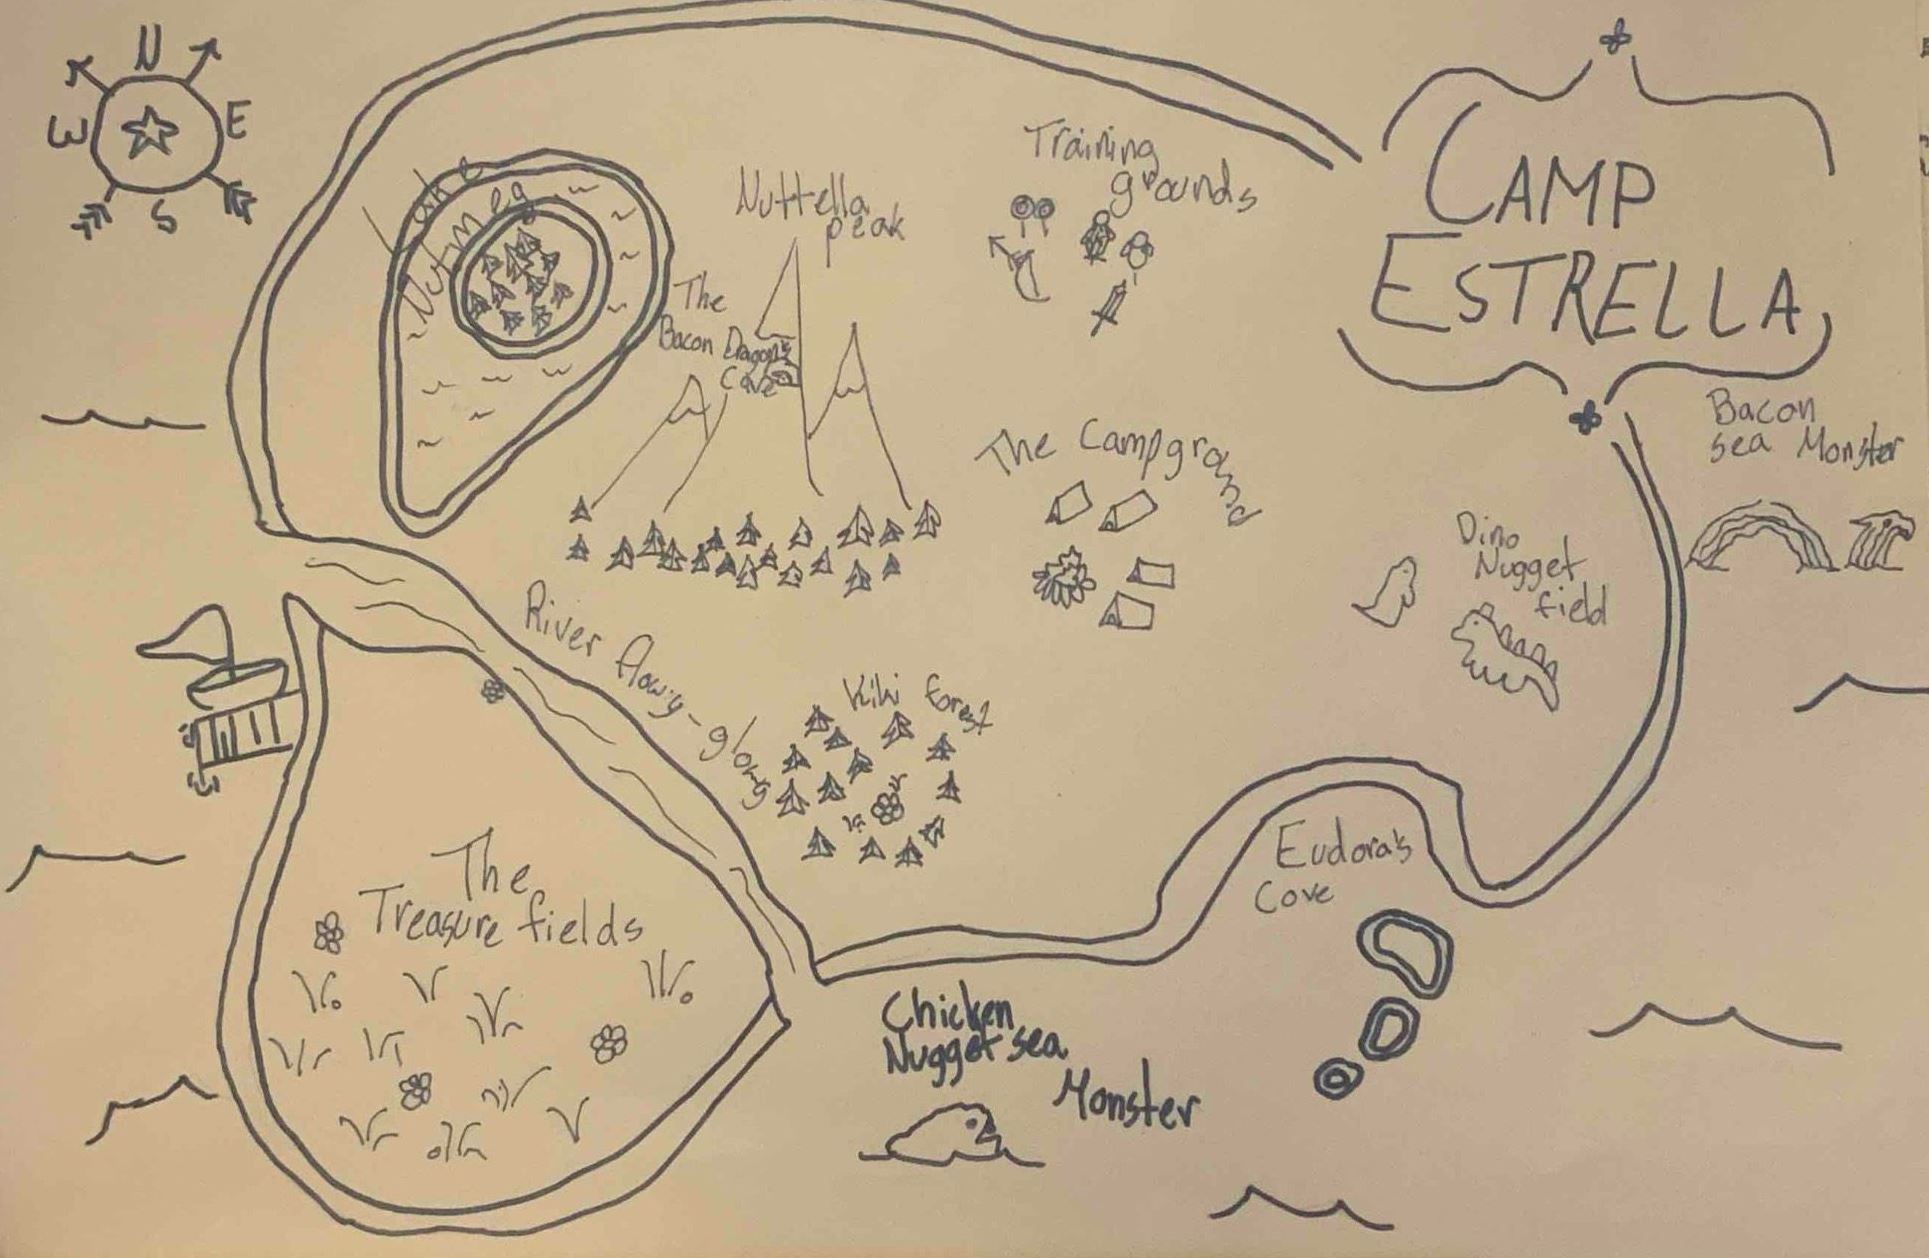 N
W
E
S
CAMP
ESTRELLA
Training
grounds
Lake
Nutmeg
Nuttella
peak
The
Bacon Dragon's
Cave
The Campground
Bacon
sea Monster
Dino
Nugget
field
River flowy-glowy
Kiki forest
The
Treasure fields
Eudora's
Cove
Chicken
Nugget sea
Monster